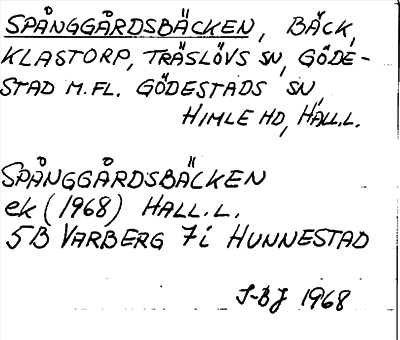 SPÅNGGÅRDSBÄCKEN, BÄCK,
KLASTORP, TRÄSLÖVS SN, GÖDE-
STAD M.FL. GÖDESTADS SN,
HIMLE HD, HALL.L.
SPÅNGGÅRDSBÄCKEN
ek (1968) HALL.L.
5B VARBERG 7i HUNNESTAD
S-BJ 1968